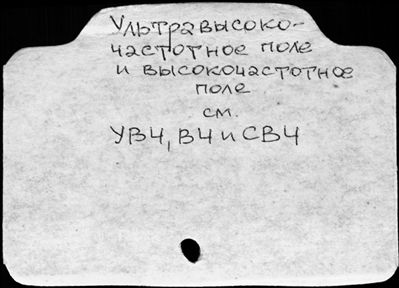 Ультравысоко-
частотное поле
и высокочастотное
поле
см.
УВЧ, ВЧ и СВЧ